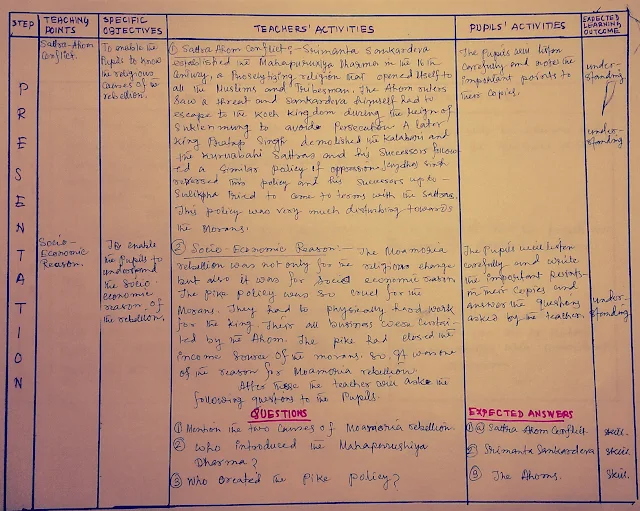 STEP
TEACHING POINTS
SPECIFIC OBJECTIVES
TEACHERS' ACTIVITIES
PUPILS' ACTIVITIES
EXPECTED LEARNING OUTCOME
PRESENTATION
Sattra-Ahom
Conflict.
To enable the
Pupils to know
the religious
Causes of the
rebellion.
① Sattra Ahom Conflict:- Srimanta Sankardeva
established the Mahapurusiya Dharma in the 16 th
Century, a Proselytising religion that opened itself to
all the Muslims and Tribesman. The Ahom rulers
Saw a threat and Sankardeva himself had to
escape to the Koch Kingdom during the Reign of
Suklenmung to avoid Persecution. A later
King Pratap Singh demolished the Kalabari and
the Kuruabahi Sattras and his Successors follow
ed a Similar policy of oppression. Singh
reversed this policy and his Sucessors up to-
Sulikpha tried to come to terms with the Sattras.
This policy was very much disturbing towards
the Morans.
The Pupils will listen
carefully and notes the
important points to
their Copies.
under-
standing
under-
standing
Socio-
Economic
Reason.
To enable
the Pupils to
understand
the Socio-
economic
reason of
the rebellion.
② Socio-Economic Reason:- The Moamoria
rebellion was not only for the religious change
but also it was for Socio economic
The Pike policy was so cruel for the
Morans. They had to physically hard work
for the King. Their all business were
ted by the Ahom. The pike had closed the
income source of the morans. So, It was one
of the reason for Moamoria rebellion.
After these the teacher will asks the
following questions to the Pupils.
The Pupils will listen
carefully and write
the important points
in their Copies and
answer the questions
asked by the teacher.
under-
standing
QUESTIONS
① Mention the two Causes of Moamoria rebellion.
② Who introduced the Mahapurushiya
Dharma?
③ Who created the Pike Policy?
EXPECTED ANSWERS
① a) Sattra Ahom Conflict
② Srimanta Sankardeva
③ The Ahoms.
Skill.
Skill.
Skill.